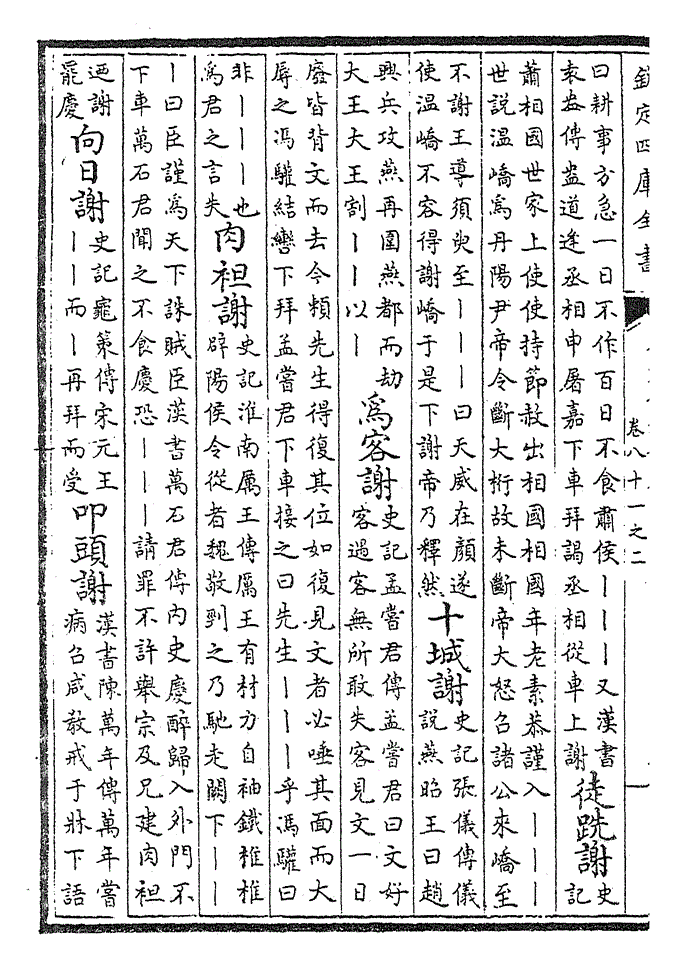 欽定四庫全書
卷八十一之二
一
曰耕事方急一日不作百日不食肅侯｜｜｜又漢書
袁盎傳盎道逢丞相申屠嘉下車拜謁丞相從車上謝
徒跣謝
史
記
蕭相國世家上使使持節赦出相國相國年老素恭謹入｜｜｜
世説温嶠爲丹陽尹帝令斷大桁故未斷帝大怒召諸公來嶠至
不謝王導須臾至｜｜｜曰天威在顔遂
使温嶠不容得謝嶠于是下謝帝乃釋然
十城謝
史記張儀傳儀
説燕昭王曰趙
興兵攻燕再圍燕都而劫
大王大王割｜｜以｜
爲客謝
史記孟嘗君傳孟嘗君曰文好
客遇客無所敢失客見文一日
廢皆背文而去今頼先生得復其位如復見文者必唾其面而大
辱之馮驩結轡下拜孟嘗君下車接之曰先生｜｜｜乎馮驩曰
非｜｜｜也
爲君之言失
肉袒謝
史記淮南厲王傳厲王有材力自袖鐵椎椎
辟陽侯令從者魏敬剄之乃馳走闕下｜｜
｜曰臣謹爲天下誅賊臣漢書萬石君傳内史慶醉歸入外門不
下車萬石君聞之不食慶恐｜｜｜請罪不許舉宗及兄建肉袒
迺謝
罷慶
向日謝
史記龜策傳宋元王
｜｜而｜再拜而受
叩頭謝
漢書陳萬年傳萬年嘗
病召咸教戒于牀下語